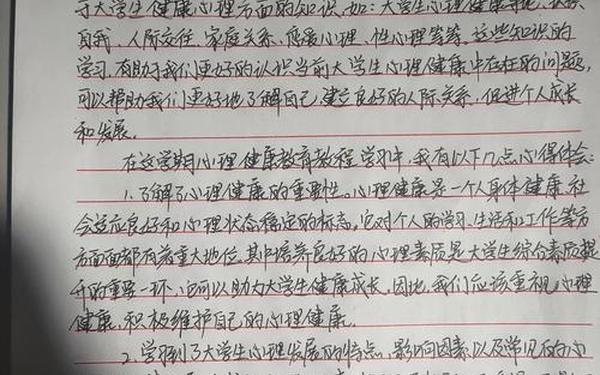 于大学生健康心理方面的知识,如:大学生心理健康导论、认识
自我、人际交往、家庭关系、恋爱心理、性心理等等。这些知识的
学习,有助于我们更好的认识当前大学生心理健康中存在的问题,
可以帮助我们更好地了解自己,建立良好的人际关系,促进个人成长
和发展。
在这学期心理健康教育教程学习中,我有以下几点心得体会:
1.了解了心理健康的重要性。心理健康是一个人身体健康、社
会适应良好和心理状态稳定的标志。它对个人的学习、生活和工作等方
方面面都有着重大地位。其中培养良好的心理素质是大学生综合素质提
升的重要一环,它可以助力大学生健康成长。因此,我们应该重视心理
健康,积极维护自己的心理健康。
2.学习到了大学生心理发展的特点、影响因素以及常见的心